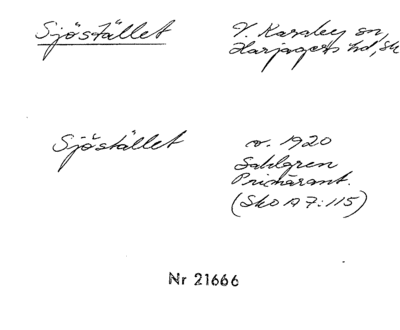 Sjöstället
V. Karaby sn,
Harjagers hd, Sk
Sjöstället
v. 1920
Sahlgren
Primärant.
(Sko A 7:115)
Nr 21666